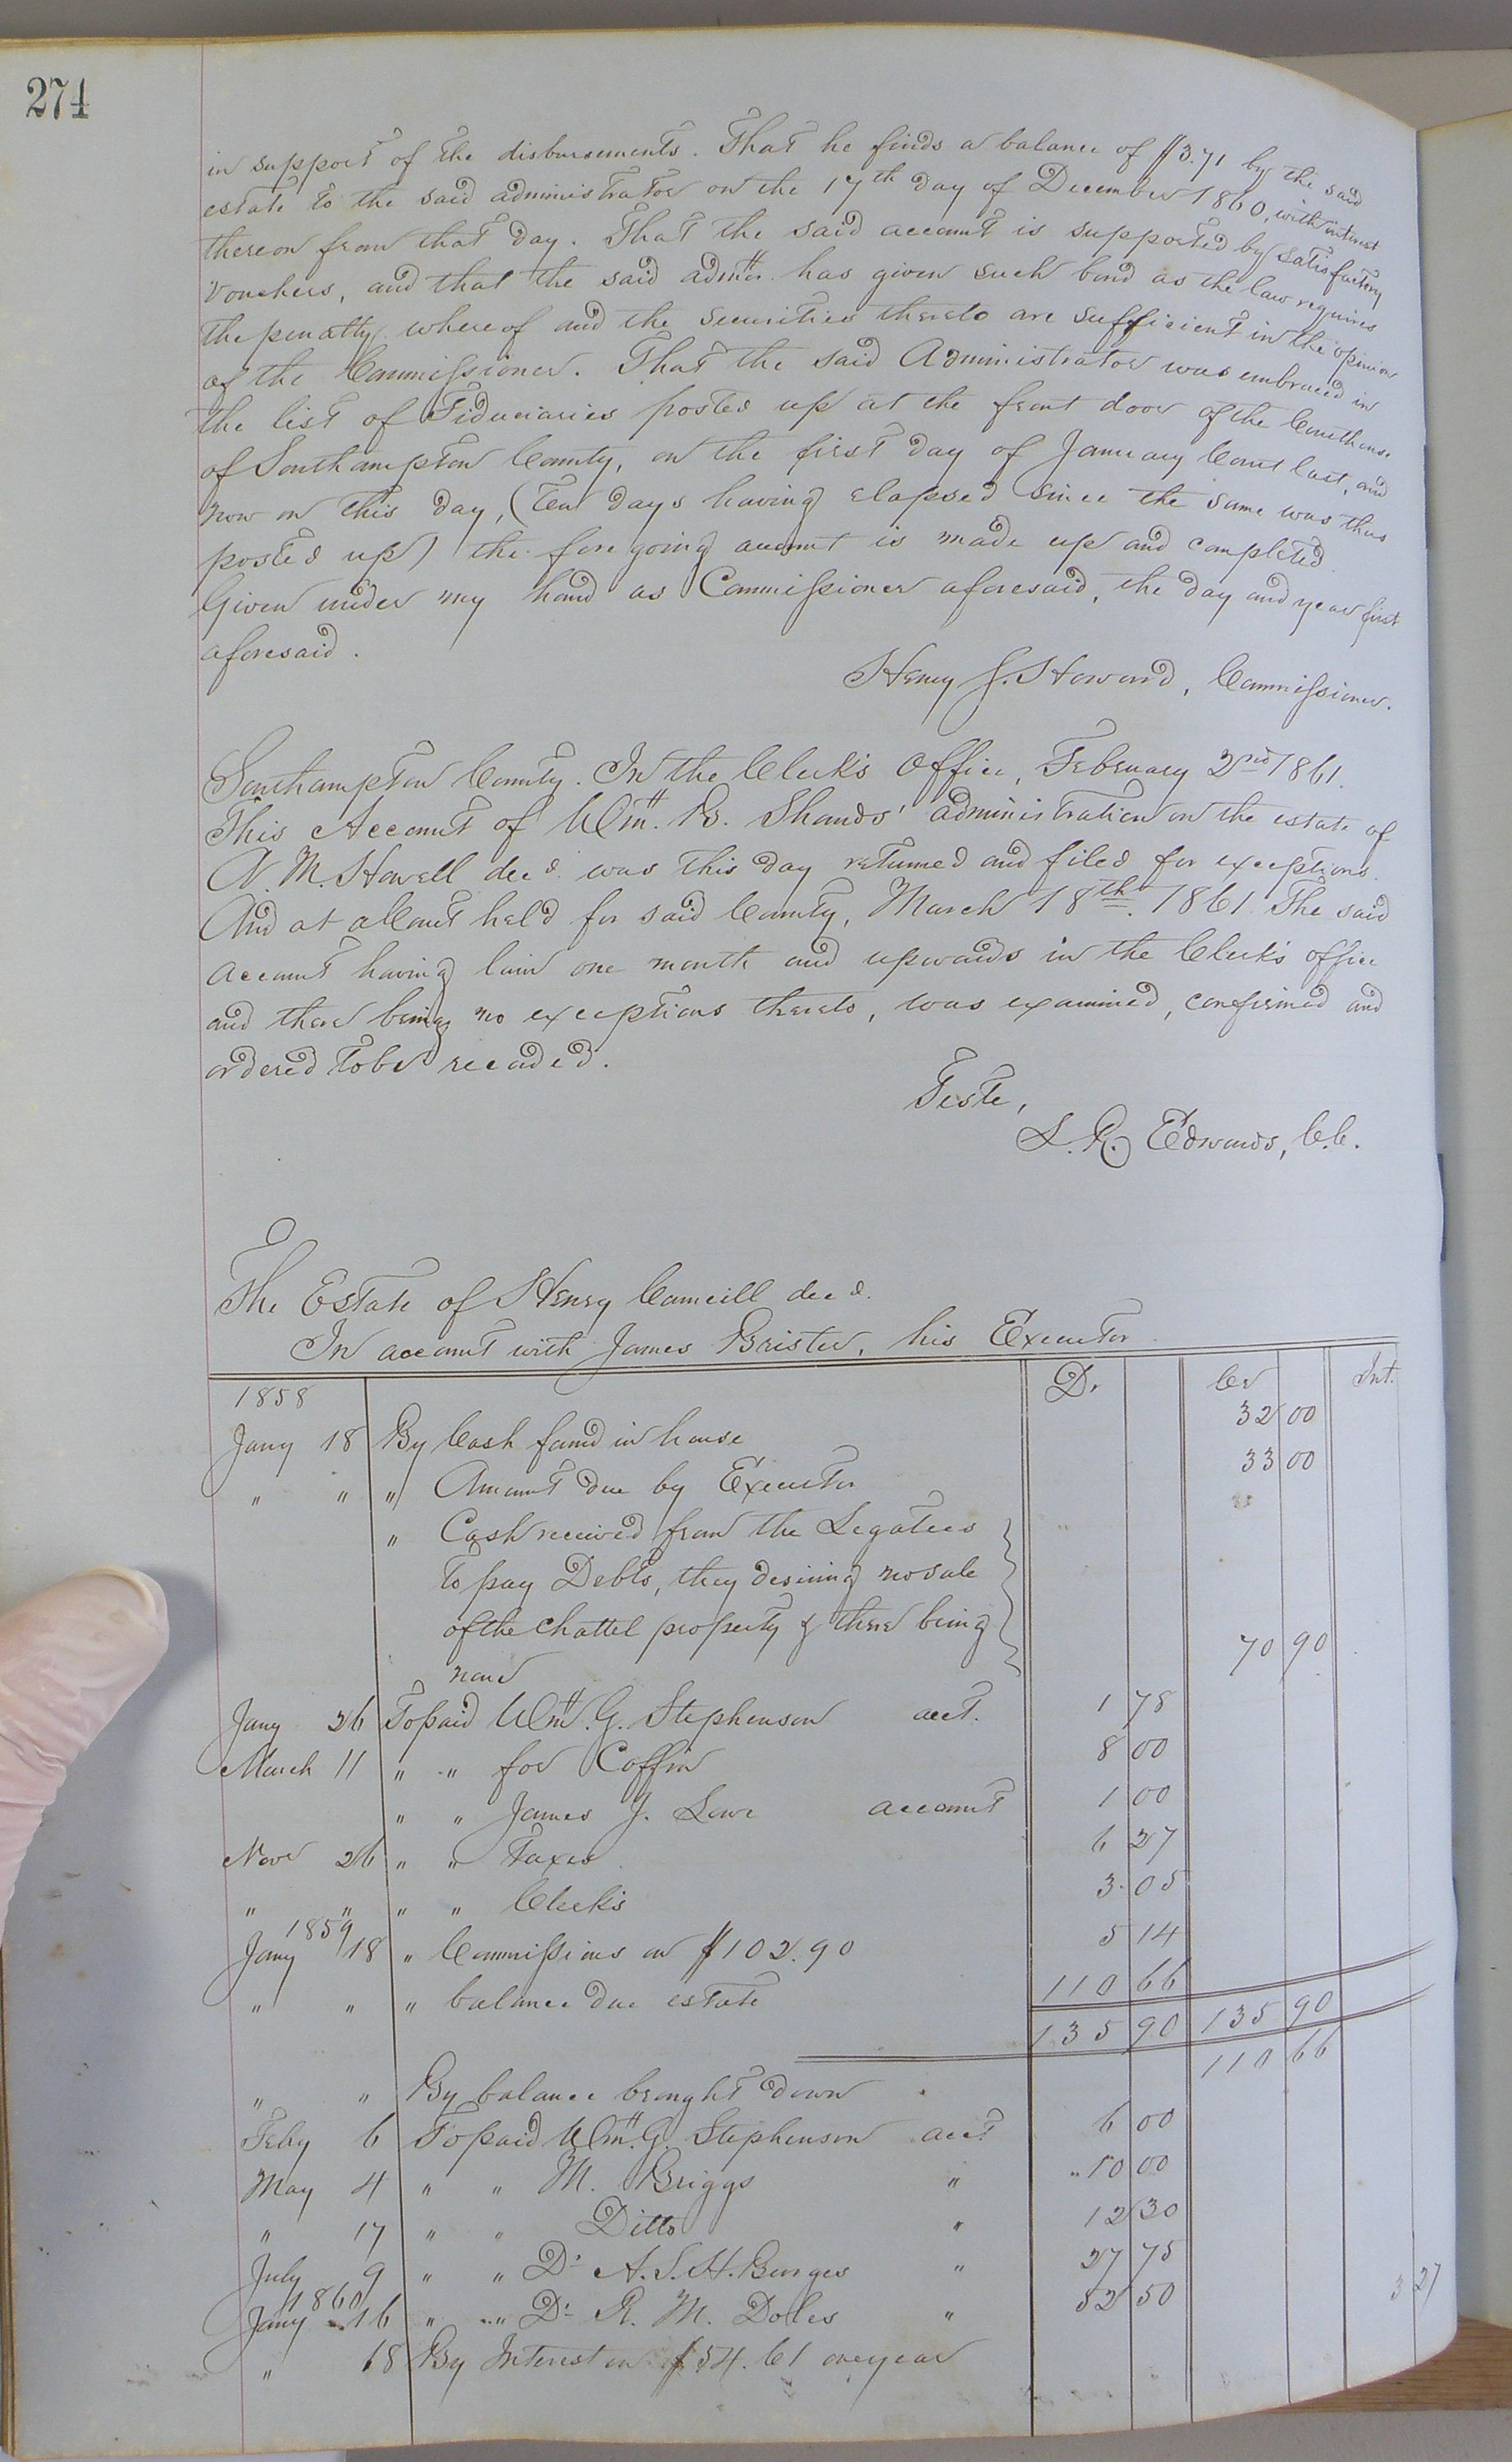 274
in support of the disbursements. That he finds a balance of $3.71 by the said
estate to the said administrator on the 17th day of December 1860, with interest
thereon from that day. That the said account is supported by satisfactory
vouchers, and that the said admr. has given such bond as the law requires
the penalty whereof and the securities thereto are sufficient in the opinion
of the Commissioner. That the said Administrator was embraced in
the list of Fiduciaries posted up at the front door of the Courthouse
of Southampton County, on the first day of January Court last, and
now on this day, (ten days having elapsed since the same was thus
posted up) the foregoing account is made up and completed.
Given under my hand as Commissioner aforesaid, the day and year first
aforesaid.
Henry J. Howard, Commissioner.
Southampton County. In the Clerk's Office, February 2nd 1861.
This Account of Wm. B. Shands' administration on the estate of
N. M. Howell decd. was this day returned and filed for exceptions.
And at a Court held for said County, March 18th. 1861 The said
account having lain one month and upwards in the Clerk's office
and there being no exceptions thereto, was examined, confirmed and
ordered to be recorded.
Teste,
L. R. Edwards, C.C.
The Estate of Henry Camcill decd.
In account with James Brister, his Executor.
1858 Dr Cr Int.
Jany 18 By Cash found in house 32 00
" " " Amount due by Executor 33 00
" Cash received from the Legatees
to pay Debts, they desiring no sale
of the chattel property & there being
none 70 90
Jany 26 To paid Wm. G. Stephenson acct. 1 78
March 11 " " for Coffin 8 00
" " James J. Lowe account 1 00
Novr 26 " " Taxes 6 27
" " " " Clerk's 3.05
1859
Jany 18 " Commissions on $102.90 5 14
" " " balance due estate 110 66
135 90 135 90
" " By balance brought down 110 66
Feby 6 To paid Wm. G. Stephenson acct 6 00
May 4 " " M. Briggs " 10 00
" 17 " " Ditto " 12 30
July 9 " " Dr A. S. H. Burges " 27 75
1860
Jany 16 " " Dr R. M. Doles " 52 50
" 18 By Interest on $54.61 one year 3 27